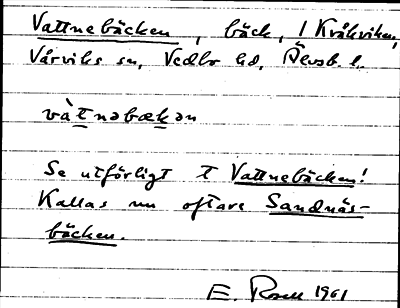 Vattnebäcken, bäck, i Kråkviken,
Vårviks sn, Vedbo hd, Älvsb. l.
vàtnəbækən
Se utförligt t Vattnebäcken!
Kallas nu oftare Sandnäs-
bäcken.
E. Rosell 1961